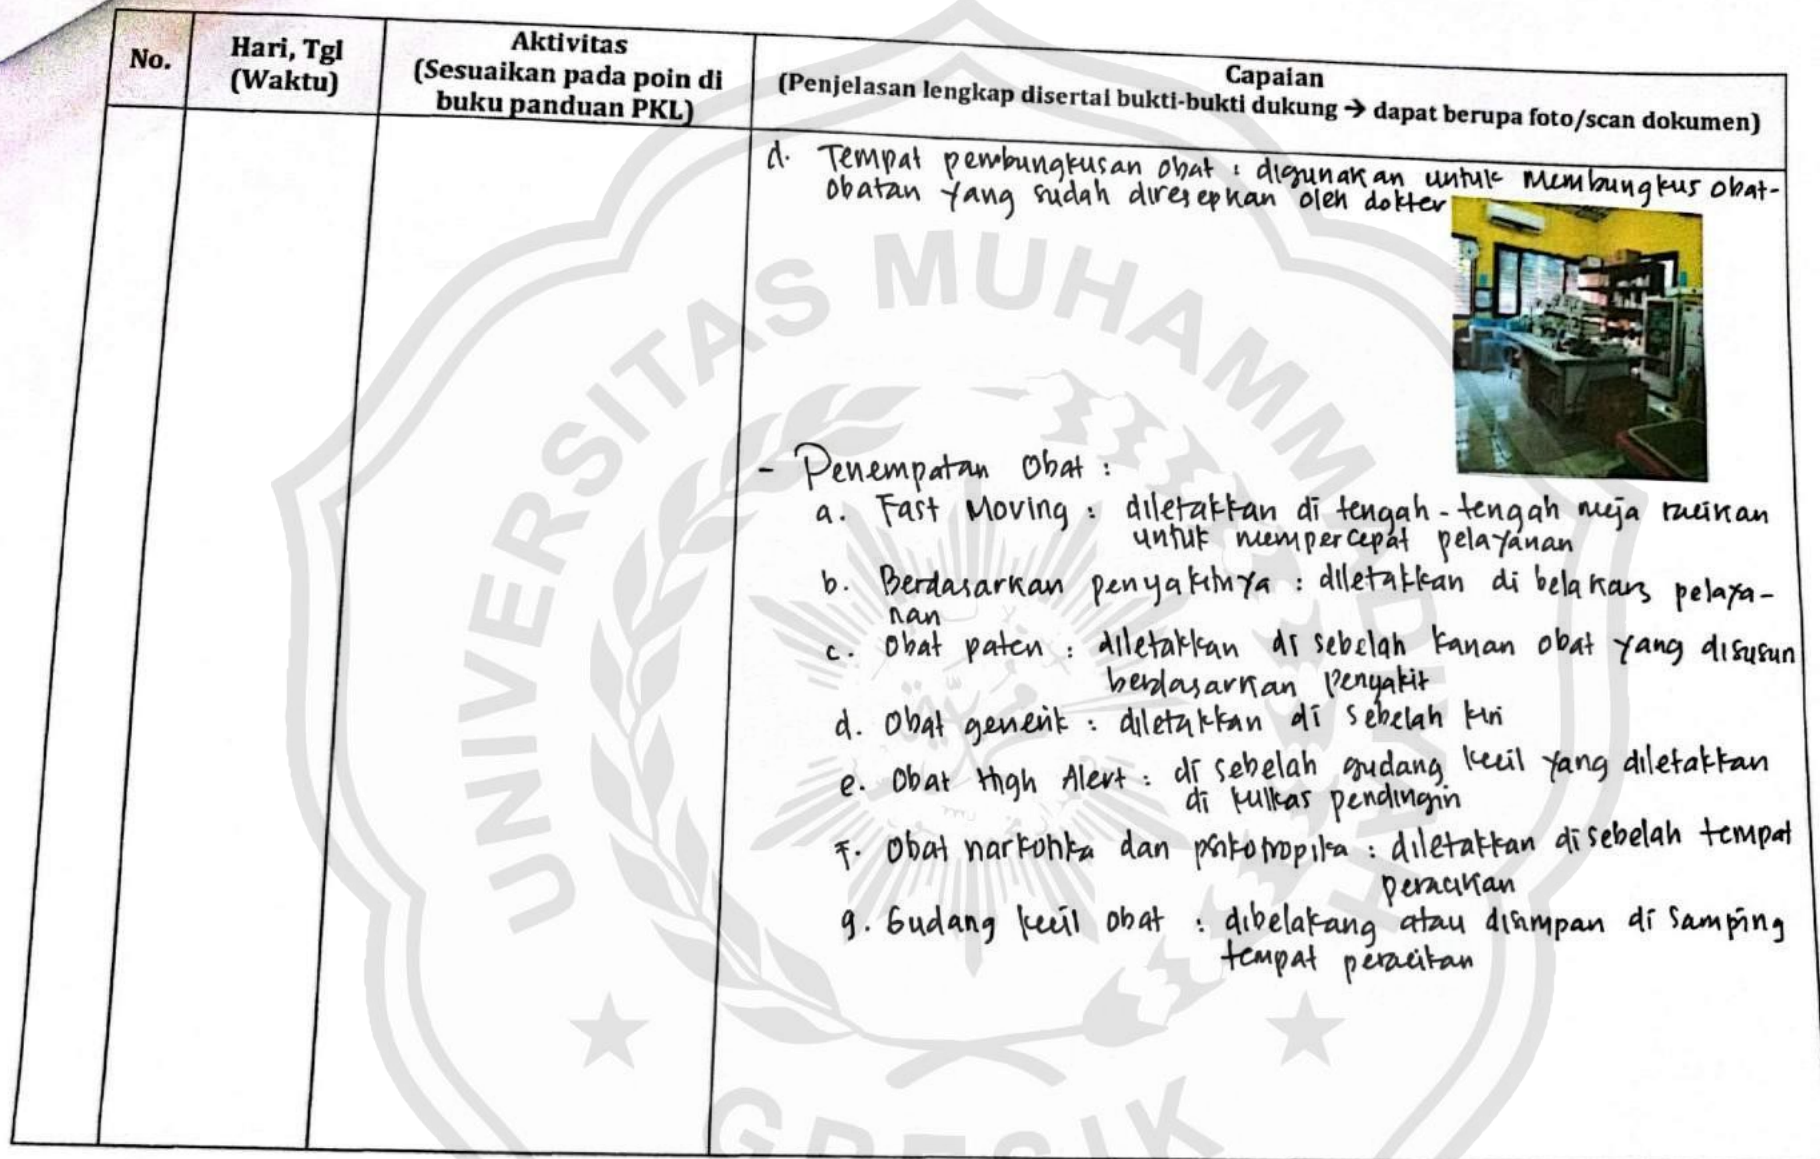 No.
Hari, Tgl
(Waktu)
Aktivitas
(Sesuaikan pada poin di
buku panduan PKL)
Capaian
(Penjelasan lengkap disertai bukti-bukti dukung → dapat berupa foto/scan dokumen)
d. Tempat pembungkusan obat : digunakan untuk membungkus obat-
obatan yang sudah diresepkan oleh dokter
- Penempatan Obat :
a. Fast Moving : diletakkan di tengah-tengah meja racikan
untuk mempercepat pelayanan
b. Berdasarkan penyakitnya : diletakkan di belakang pelaya-
nan
c. Obat paten : diletakkan di sebelah kanan obat yang disusun
berdasarkan penyakit
d. Obat generik : diletakkan di sebelah kiri
e. Obat High Alert : di sebelah gudang kecil yang diletakkan
di kulkas pendingin
f. Obat narkotika dan psikotropika : diletakkan disebelah tempat
peracikan
g. Gudang kecil obat : dibelakang atau disimpan di samping
tempat peracikan
UNIVERSITAS MUHAMMADIYAH
GRESIK